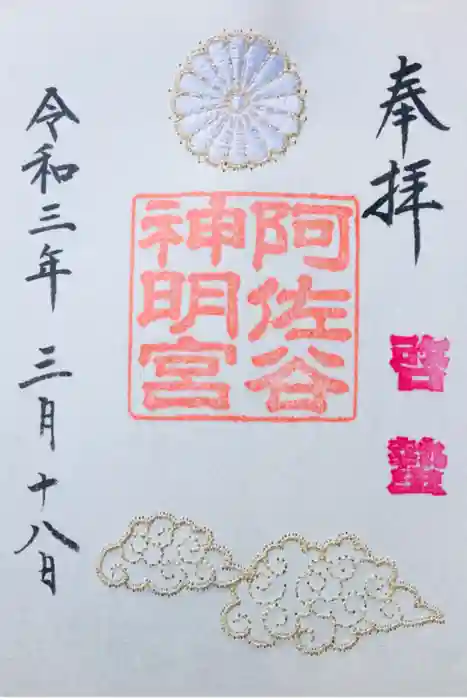 奉拝
啓蟄
阿佐谷
神明宮
令和三年 三月十八日